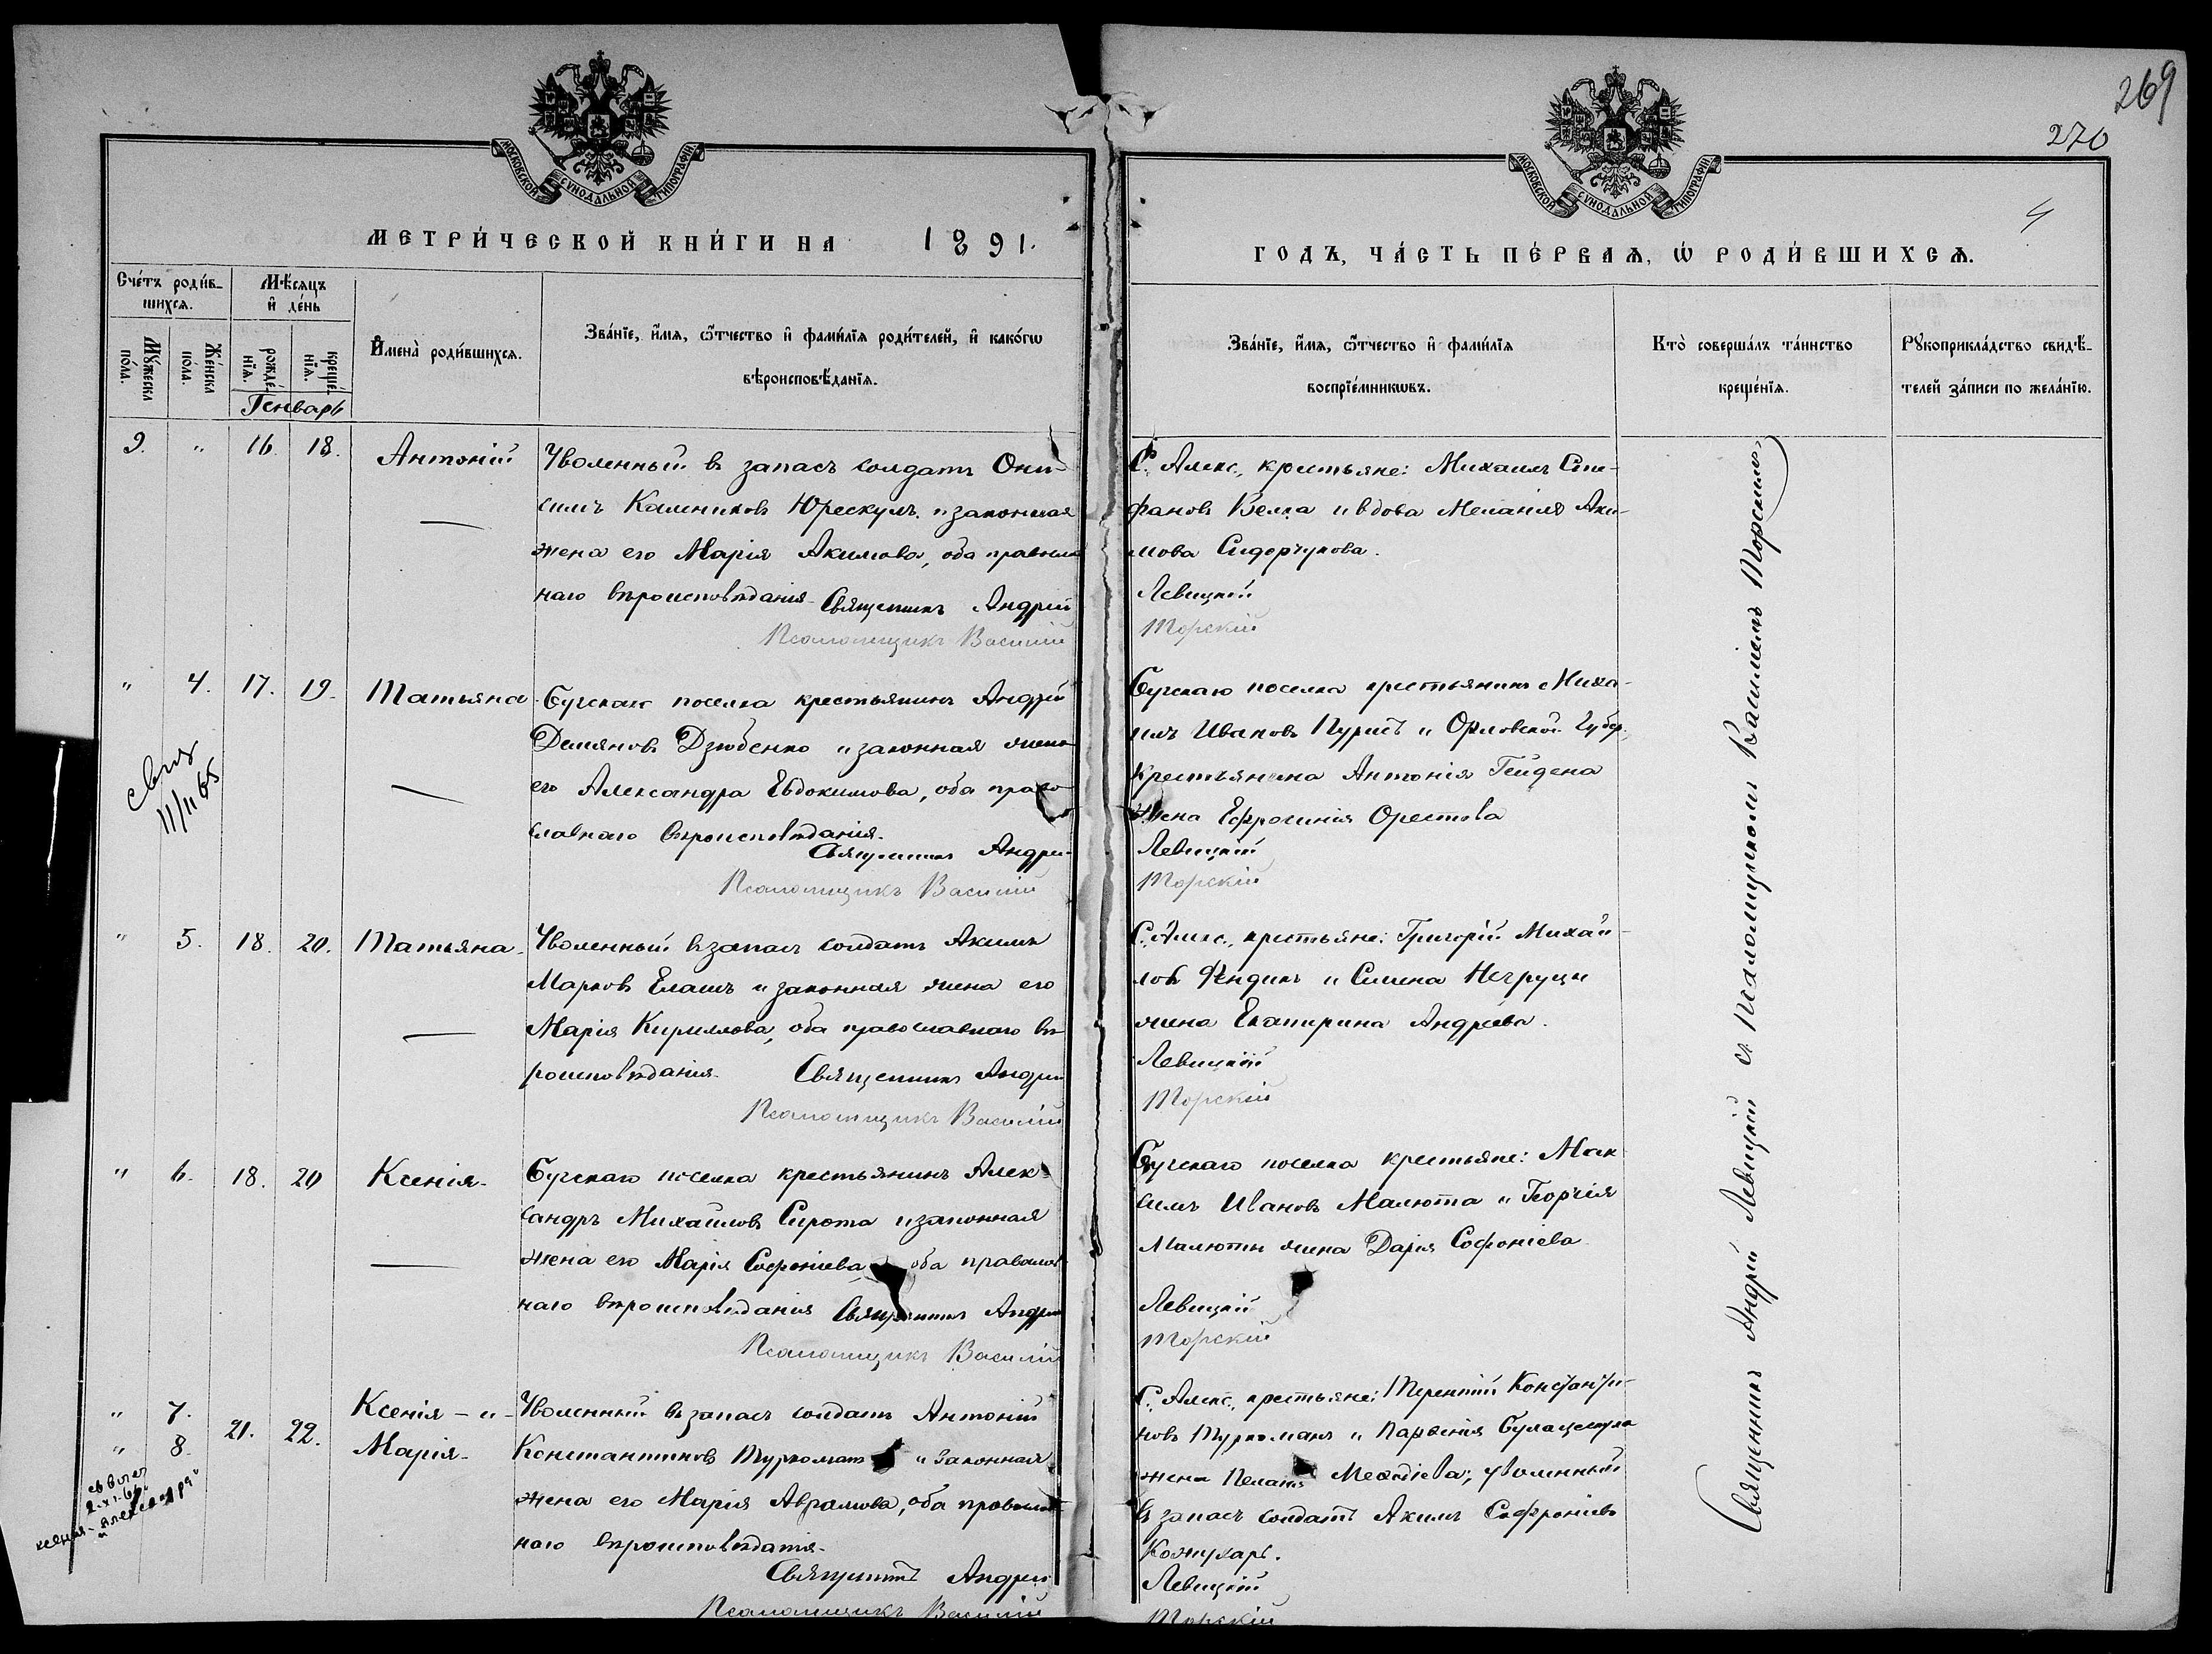 269
270
4
МОСКОВСКОЙ СѴНОДАЛЬНОЙ ТИПОГРАФІИ
МОСКОВСКОЙ СѴНОДАЛЬНОЙ ТИПОГРАФІИ
МЕТРИ́ЧЕСКОЙ КНИ́ГИ НА 1891.
ГОДЪ, ЧА́СТЬ ПЕ́РВАѦ, Ѡ РОДИ́ВШИХСѦ.
Сче́тъ роди́в-
шихсѧ.
Мꙋ́жеска по́ла.
Же́нска пола.
Мѣ́сѧцъ и де́нь
рожде́нїѧ.
креще́нїѧ.
Генварь
И҆мена̀ роди́вшихсѧ.
Зва́нїе, и҆́мѧ, ѻ҆́тчество и҆ фами́лїѧ роди́телей, и҆ како́гѡ
вѣроисповѣ́данїѧ.
Зва́нїе, и҆́мѧ, ѻ҆́тчество и҆ фами́лїѧ
воспрїе́мникѡвъ.
Кто̀ соверша́лъ та́инство
креще́нїѧ.
Рꙋкоприкла́дство свидѣ́-
телей за́писи по жела́нїю.
9. " 16. 18. Антоній
Уволенный въ запасъ солдатъ Они-
симъ Калениковъ Юрескулъ и законная
жена его Марія Акимова, оба православ
наго вѣроисповѣданія Священникъ Андрей
Псаломщикъ Василій
С. Алекс., крестьяне: Михаилъ Сте-
фановъ Велга и вдова Меланія Аки-
мова Сидорчукова.
Левицкій
Торскій
" 4. 17. 19. Татьяна
Бугскаго поселка крестьянинъ Андрей
Демяновъ Дзюбенко и законная жена
его Александра Евдокимова, оба право-
славнаго вѣроисповѣданія.
Священникъ Андрей
Псаломщикъ Василій
Бугскаго поселка крестьянинъ Миха-
илъ Ивановъ Пуритъ и Орловской Губер.
Крестьянина Антонія Гейдена
жена Ефросинія Орестова
Левицкій
Торскій
11/II 65
" 5. 18. 20. Татьяна.
Уволенный въ запасъ солдатъ Акимъ
Марковъ Елашъ и законная жена его
Марія Кириллова, оба православнаго вѣ-
роисповѣданія. Священникъ Андрей
Псаломщикъ Василій
С. Алекс., крестьяне: Григорій Михай-
ловъ Фендикъ и Симена Негруци
жена Екатерина Андреева.
Левицкій
Торскій
" 6. 18. 20 Ксенія.
Бугскаго поселка крестьянинъ Алек-
сандръ Михайловъ Сирота и законная
жена его Марія Софоніева оба православ
наго вѣроисповѣданія Священникъ Андрей
Псаломщикъ Василій
Бугскаго поселка крестьяне: Мак-
симъ Ивановъ Малюта и Георгія
Малюты жена Дарія Софоніева
Левицкій
Торскій
" 7. Ксенія – и –
" 8. 21. 22. Марія.
Уволенный въ запасъ солдатъ Антоній
Константиновъ Туркоманъ и законная
жена его Марія Аврамова, оба православ
наго вѣроисповѣданія.
Священникъ Андрей
Псаломщикъ Василій
С. Алекс., крестьяне: Терентій Константи-
новъ Туркоманъ и Парѳенія
жена Пелагія Меѳодіева; уволенный
въ запасъ солдатъ Акимъ Софроніевъ
Кожухарь.
Левицкій
Торскій
Священникъ Андрей Левицкій съ Псаломщикомъ Василіемъ Торскимъ